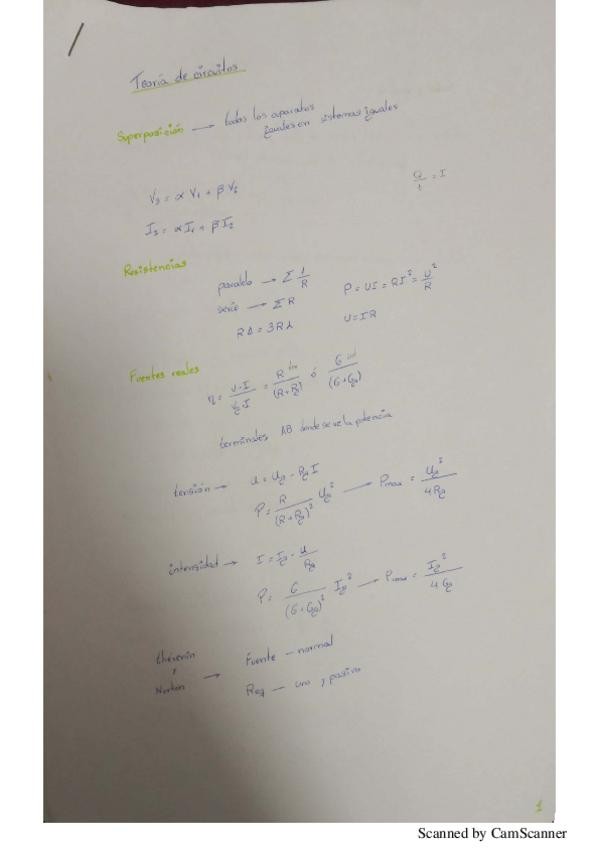 Teoría de circuitos
Superposición → todos los aparatos
iguales en sistemas iguales
Q/t = I
V₃ = αV₁ + βV₂
I₃ = αI₁ + βI₂
Resistencias
paralelo → Σ 1/R
P = UI = RI² = U²/R
serie → Σ R
U = IR
RΔ = 3Rλ
Fuentes reales
η = U·I / Vg·I = R / (R+Rg) ó G / (G+Gg)
terminales AB donde se ve la potencia
tensión → u = Ug - Rg I
P = R / (R+Rg)² Ug² → Pmax = Ug² / 4Rg
intensidad → I = Ig - u / Rg
P = G / (G+Gg)² Ig² → Pmax = Ig² / 4Gg
thévenin
y
Norton →
Fuente - normal
Req - uno y pasivo
1
Scanned by CamScanner